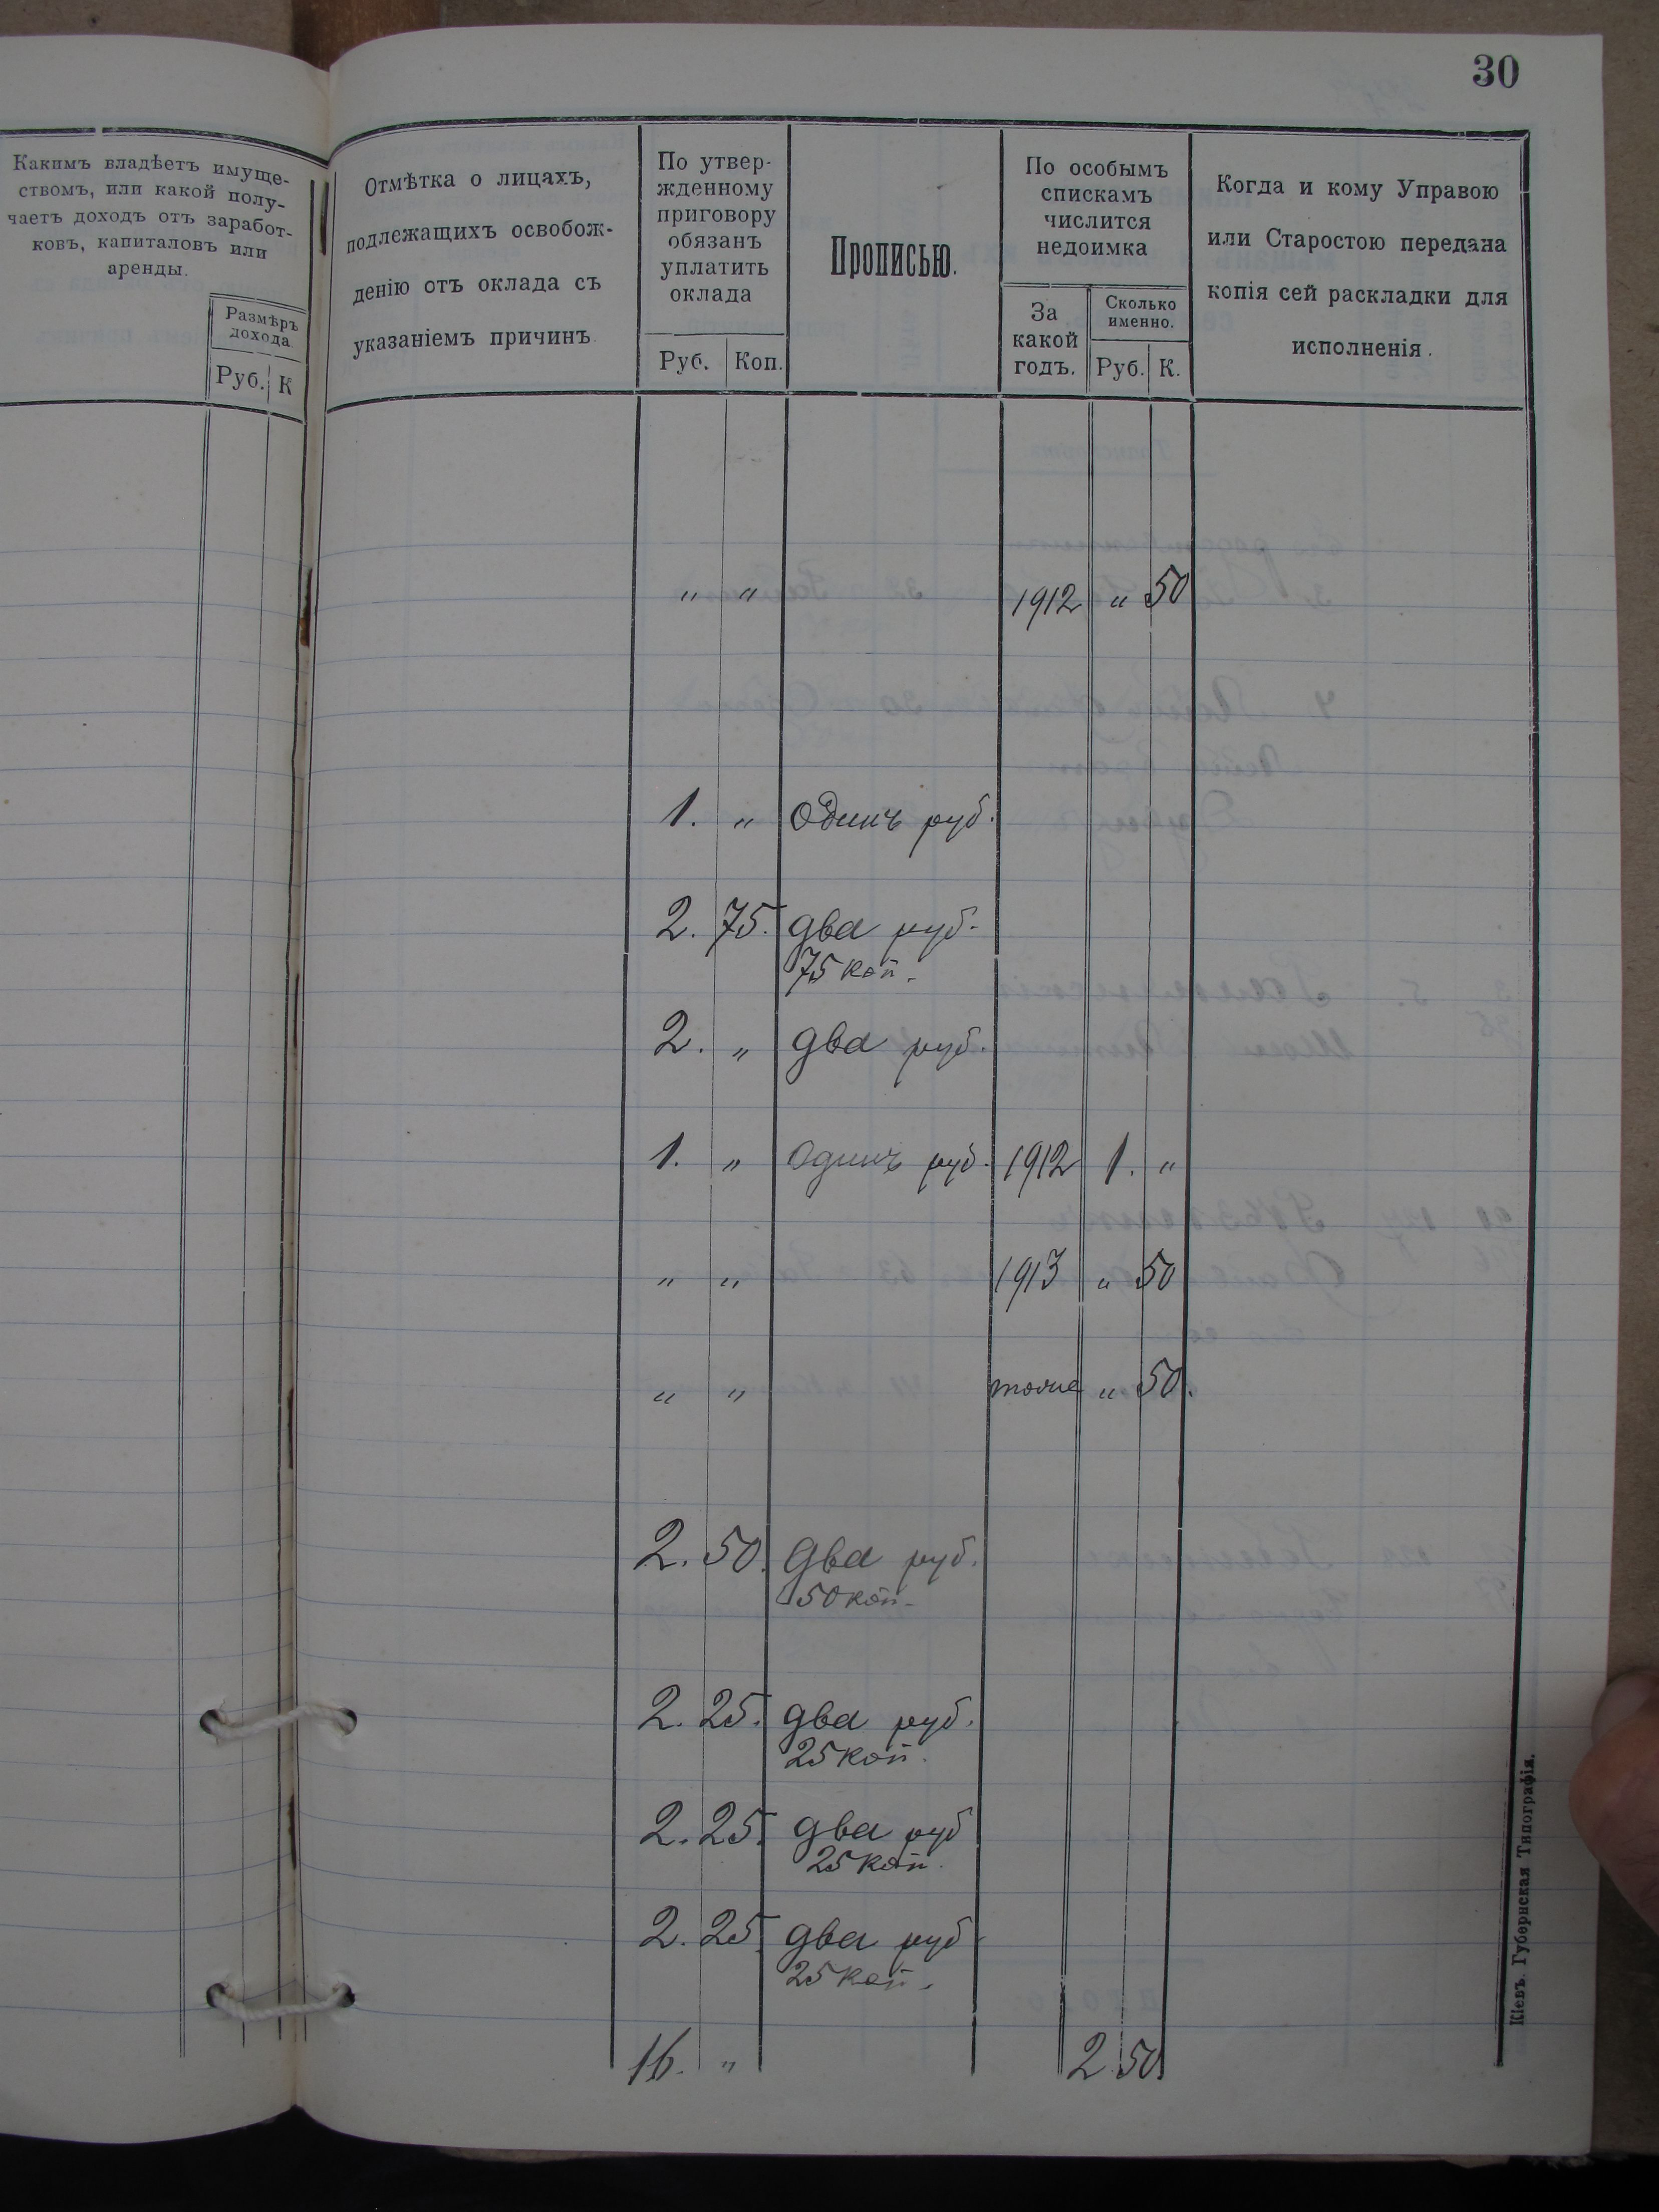 30
Какимъ владѣетъ имуще-
ствомъ, или какой полу-
чаетъ доходъ отъ заработ-
ковъ, капиталовъ или
аренды.
Размѣръ
дохода.
Руб. К
Отмѣтка о лицахъ,
подлежащихъ освобож-
денію отъ оклада съ
указаніемъ причинъ.
По утвер-
жденному
приговору
обязанъ
уплатить
оклада
Руб. Коп.
Прописью.
По особымъ
спискамъ
числится
недоимка
За
какой
годъ.
Сколько
именно.
Руб. К.
Когда и кому Управою
или Старостою передана
копія сей раскладки для
исполненія.
" " 1912 " 50
1. " Одинъ руб.
2. 75. два руб.
75 коп.
2. " два руб.
1. " Одинъ руб. 1912 1. "
" " 1913 " 50
" " тоже " 50.
2. 50. два руб.
50 коп.
2. 25. два руб.
25 коп.
2. 25. два руб
25 коп.
2. 25. два руб
25 коп.
16. " 2 50.
Кіевъ. Губернская Типографія.